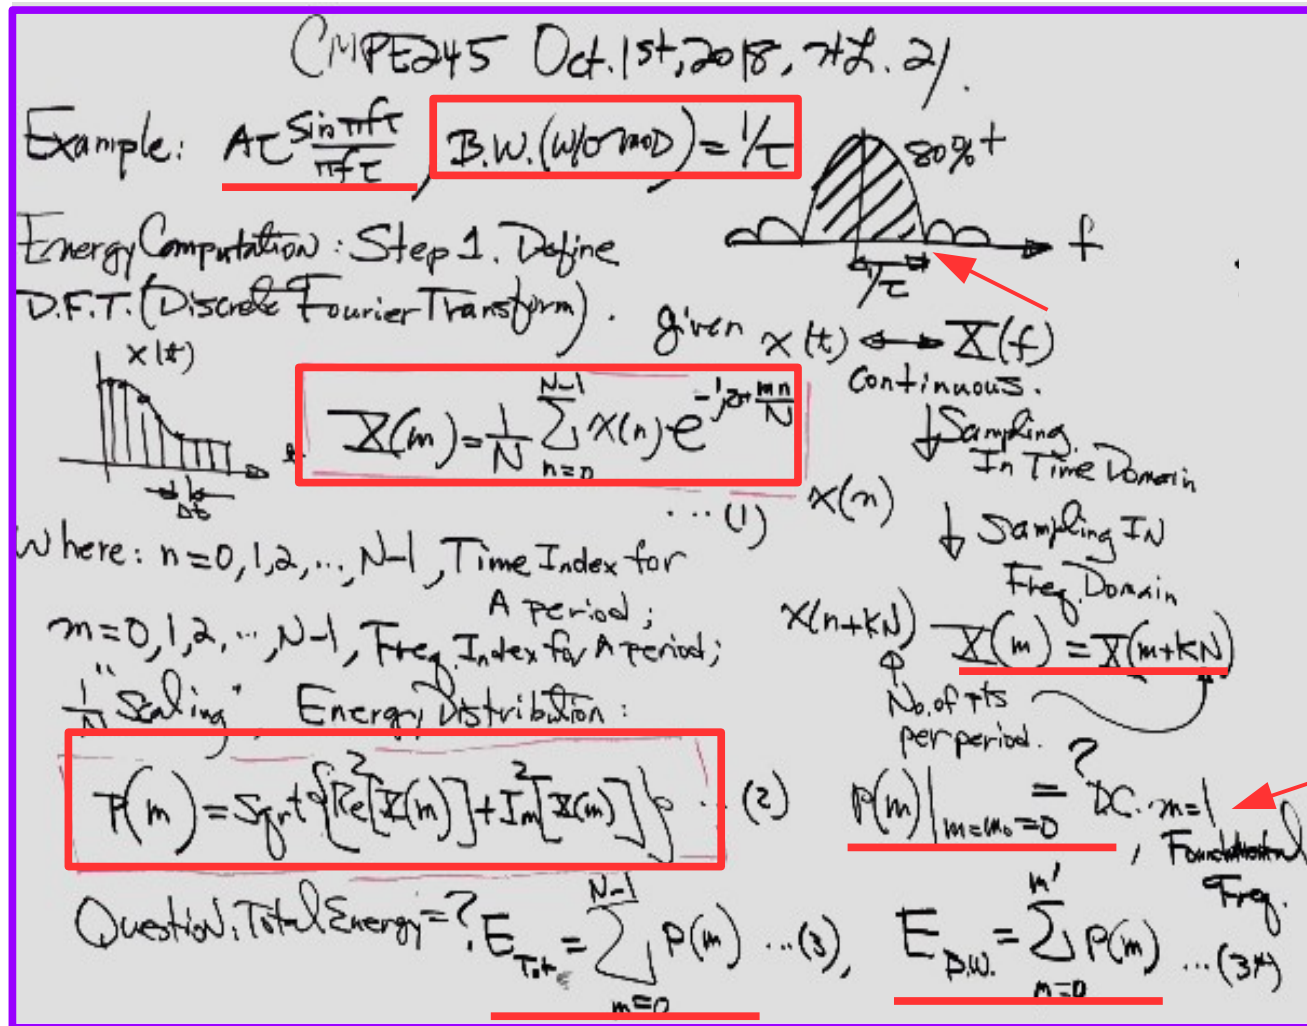 CMPE245 Oct. 1st, 2018, HL. 2/.
Example: Aτ sin πfτ / πfτ , B.W.(W/O MOD) = 1/τ
80%+
f
1/τ
Energy Computation: Step 1. Define
D.F.T. (Discrete Fourier Transform).
given x(t) ↔ X(f)
Continuous.
x(t)
Δt
X(m) = 1/N Σ_{n=0}^{N-1} x(n) e^{-j2π mn/N}
... (1)
↓ Sampling
In Time Domain
x(n)
↓ Sampling IN
Freq. Domain
Where: n=0,1,2,...,N-1, Time Index for
A period;
m=0,1,2,...,N-1, Freq. Index for A period;
x(n+KN) X(m) = X(m+KN)
No. of pts
per period.
1/N "Scaling", Energy Distribution:
P(m) = Sqrt{Re²[X(m)] + Im²[X(m)]} ... (2)
P(m)|_{m=m₀=0} =? DC. m=1
, Foundational
Freq.
Question: Total Energy=?. E_{Tot.} = Σ_{m=0}^{N-1} P(m) ... (3), E_{B.W.} = Σ_{m=0}^{m'} P(m) ... (3A)